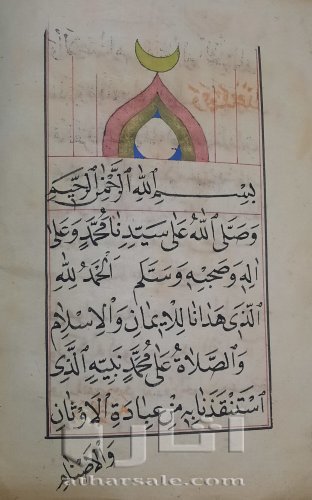 بِسْمِ اللهِ الرَّحْمٰنِ الرَّحِيْمِ
وَصَلَّى اللهُ عَلَى سَيِّدِنَا مُحَمَّدٍ وَعَلَى
اٰلِهِ وَصَحْبِهِ وَسَلَّمَ اَلْحَمْدُ لِلّٰهِ
الَّذِى هَدَانَا لِلْاِيْمَانِ وَالْاِسْلَامِ
وَالصَّلَاةُ عَلَى مُحَمَّدٍ نَبِيِّهِ الَّذِى
اسْتَنْقَذَنَا بِهِ مِنْ عِبَادَةِ الْاَوْثَانِ
وَالْاَصْنَامِ
atharsale.com